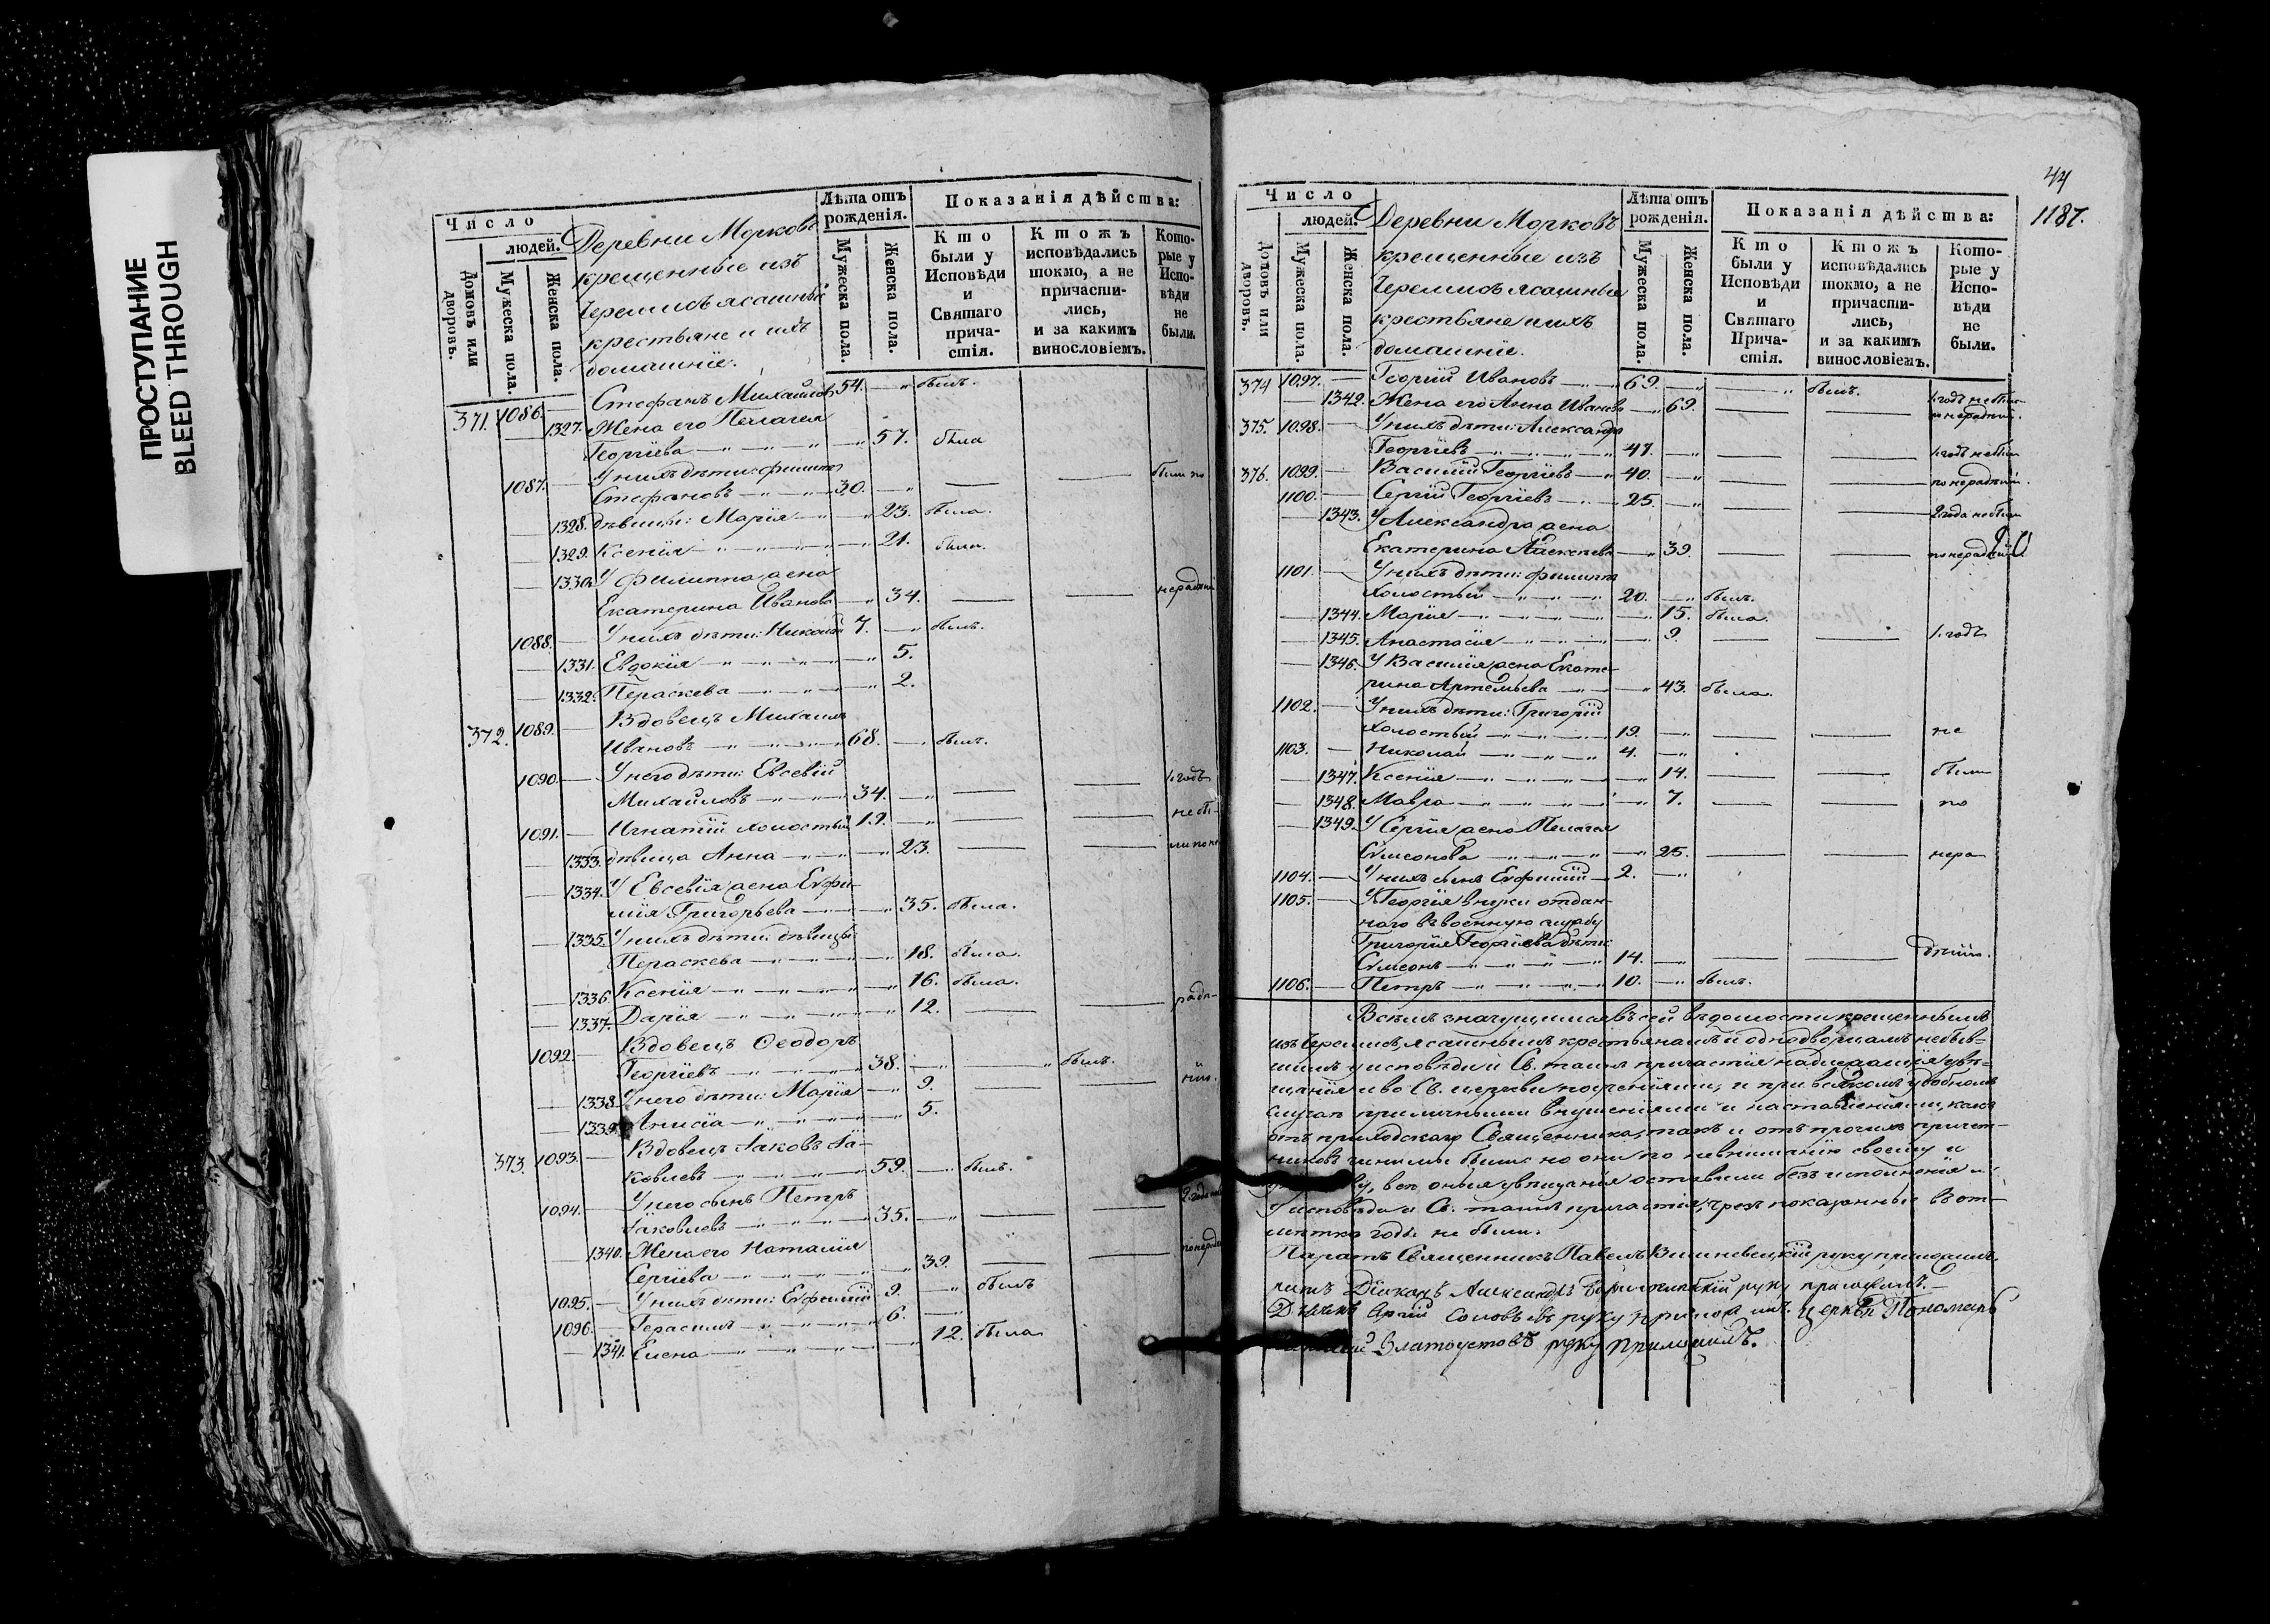 ПРОСТУПАНИЕ
BLEED THROUGH
Число
людей.
Домовъ или дворовъ.
Мужеска пола.
Женска пола.
Деревни Морковъ
крещенныіе изъ
Черемисъ ясашныіе
крестьяне и ихъ
домашніе.
Лѣта отъ рожденія.
Мужеска пола.
Женска пола.
Показанія дѣйства:
Кто были у Исповѣди и Святаго причастія.
Ктожъ исповѣдались токмо, а не причастились, и за какимъ винословіемъ.
Которые у Исповѣди не были.
371. 1086. Стефанъ Михайловъ 54. былъ.
1327. Жена его Пелагея
Георгіева 57. была
1087. У нихъ дѣти: Филиппъ
Стефановъ 30. были по
1328. дѣвицы: Марія 23. была.
1329. Ксенія 21. была.
1330. У Филиппа жена
Екатерина Иванова 34.
1088. У нихъ дѣти: Николай 7. былъ.
1331. Евдокія 5.
1332. Параскева 2.
372. 1089. Вдовецъ Михаилъ
Ивановъ 68. былъ.
1090. У него дѣти: Евсевій
Михайловъ 34. 1. годъ
1091. Игнатій холостый 19. не бы-
1333. дѣвица Анна 23.
1334. У Евсевія жена Евфи-
мія Григорьева 35. была.
1335. У нихъ дѣти: дѣвицы
Параскева 18. была.
1336. Ксенія 16. была.
1337. Дарія 12. радѣ-
1092. Вдовецъ Ѳеодоръ
Георгіевъ 38. былъ.
1338. У него дѣти: Марія 9. нію.
1339. Анисіа 5.
373. 1093. Вдовецъ Іаковъ Іа-
ковлевъ 59. былъ.
1094. У него сынъ Петръ
Іаковлевъ 35.
1340. Жена его Наталія
Сергіева 39.
1095. У нихъ дѣти: Евфимій 9. былъ
1096. Герасимъ 6.
1341. Елена 12. была
44
1187.
Число
людей.
Домовъ или дворовъ.
Мужеска пола.
Женска пола.
Деревни Морковъ
крещенныіе изъ
Черемисъ ясашныіе
крестьяне и ихъ
домашніе.
Лѣта отъ рожденія.
Мужеска пола.
Женска пола.
Показанія дѣйства:
Кто были у Исповѣди и Святаго Причастія.
Ктожъ исповѣдались токмо, а не причастились, и за какимъ винословіемъ.
Которые у Исповѣди не были.
374 1097. Георгій Ивановъ 69. былъ.
1342. Жена его Анна Иванова 69.
375. 1098. У нихъ дѣти: Александръ
Георгіевъ 41.
376. 1099. Василій Георгіевъ 40.
1100. Сергій Георгіевъ 25.
1343. У Александра жена
Екатерина Алексѣева 39.
1101. У нихъ дѣти: Филиппъ
холостый 20. былъ.
1344. Марія 15. была.
1345. Анастасія 9. 1. годъ
1346. У Василія жена Екате-
рина Артемьева 43. была.
1102. У нихъ дѣти: Григорій
холостый 19. не
1103. Николай 4.
1347. Ксенія 14. были
1348. Мавра 7. по
1349. У Сергія жена Пелагея
Симеонова 25. нера
1104. У нихъ сынъ Евфимій 2.
1105. У Георгія внуки отдан-
наго въ военную службу
Григорія Георгіева дѣти:
Симеонъ 14. дѣнію.
1106. Петръ 10. былъ.
Всѣмъ значущимся въ сей вѣдомости крещеннымъ
изъ Черемисъ, ясашнымъ крестьянамъ и однодворцамъ небыв-
шимъ у исповѣди и Св. таинъ причастія надлежащія увѣ-
щанія и во Св. церкви поученіями, и при всякомъ удобномъ
случаѣ приличными внушеніями и наставленіями, какъ
отъ приходскаго Священника, такъ и отъ прочихъ причет-
никовъ чинимы были: но они по невниманію своему и
всѣ оныя увѣщанія оставили безъ исполненія и
у исповѣди и Св. таинъ причастія, чрезъ показанные въ от-
мѣтка годы не были.
Священникъ Павелъ руку приложилъ.
Діаконъ Александръ руку приложилъ.
руку приложилъ. церкви Пономарь
Златоустовъ руку приложилъ.